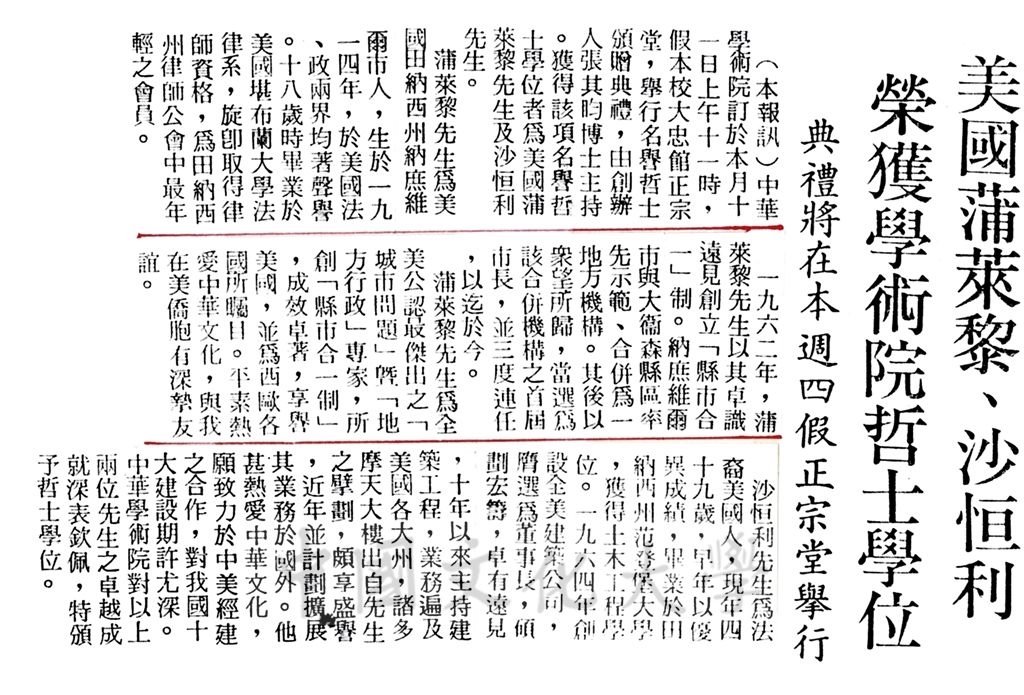 美國蒲萊黎、沙恒利
榮獲學術院哲士學位
典禮將在本週四假正宗堂舉行
（本報訊）中華
學術院訂於本月十
一日上午十一時，
假本校大忠館正宗
堂，舉行名譽哲士
頒贈典禮，由創辦
人張其昀博士主持
。獲得該項名譽哲
士學位者為美國蒲
萊黎先生及沙恒利
先生。
蒲萊黎先生為美
國田納西州納庶維
爾市人，生於一九
一四年，於美國法
、政兩界均著聲譽
。十八歲時畢業於
美國堪布蘭大學法
律系，旋卽取得律
師資格，爲田納西
州律師公會中最年
輕之會員。
一九六二年，蒲
萊黎先生以其卓識
遠見創立「縣市合
一」制。納庶維爾
市與大衞森縣區率
先示範、合併爲一
地方機構。其後以
衆望所歸，當選爲
該合併機構之首屆
市長，並三度連任
，以迄於今。
蒲萊黎先生爲全
美公認最傑出之「
城市問題」暨「地
方行政」專家，所
創「縣市合一制」
，成效卓著，享譽
美國，並爲西歐各
國所矚目。平素熱
愛中華文化，與我
在美僑胞有深摯友
誼。
沙恒利先生爲法
裔美國人，現年四
十九歲，早年以優
異成績，畢業於田
納西州范登保大學
，獲得土木工程學
位。一九六四年創
設全美建築公司，
膺選爲董事長，傾
劃宏籌，卓有遠見
，十年以來主持建
築工程，業務遍及
美國各大州，諸多
摩天大樓出自先生
之擘劃，頗享盛譽
，近年並計劃擴展
其業務於國外。他
甚熱愛中華文化，
願致力於中美經建
之合作，對我國十
大建設期許尤深。
中華學術院對以上
兩位先生之卓越成
就深表欽佩，特頒
予哲士學位。
中國文化大學